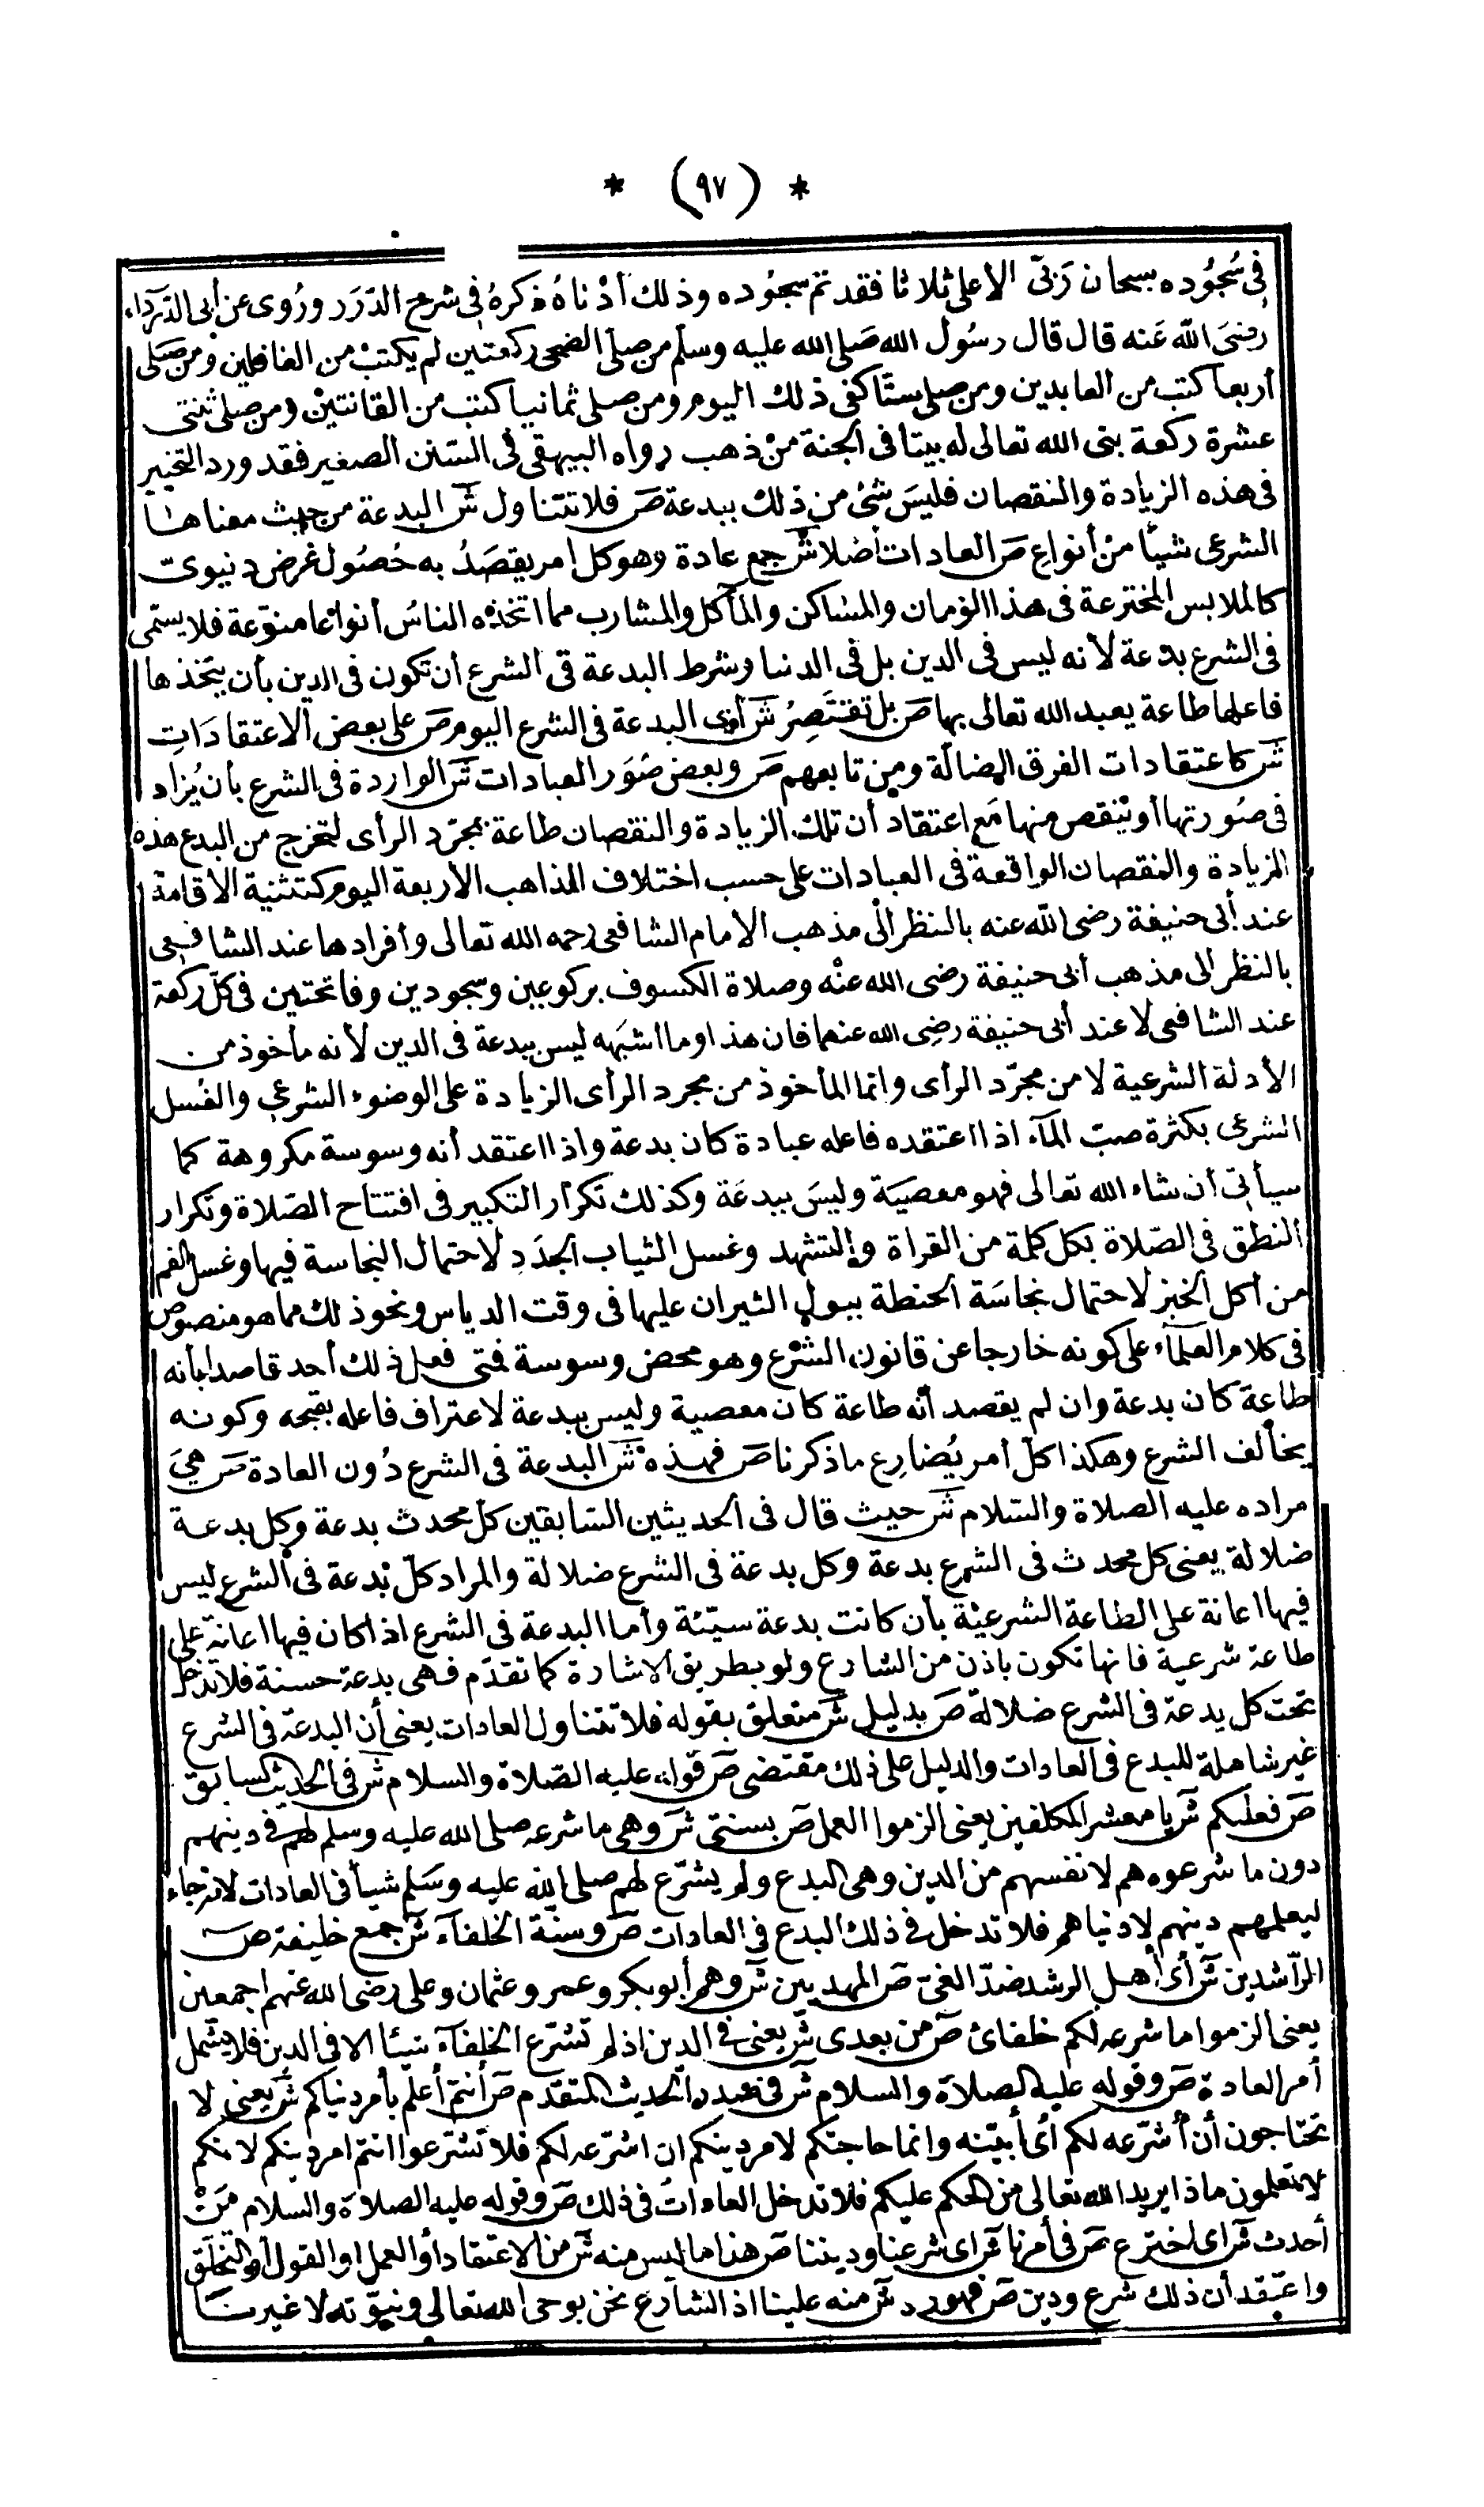 * (٩٧) *
في سُجُوده سبحان رَبىّ الأعلى ثلاثا فقد تم سجوده وذلك أدْناهُ ذكرهُ في شرح الدّرَر ورُوى عن أبى الدّرداء
رضىَ الله عَنه قال قال رسُول الله صَلى الله عليه وسلم من صلّى الضحى ركعتين لم يكتبْ من الغافلين ومن صَلى
أربعا كتب من العابدين ومن صلى ستا كفى ذلك اليوم ومن صلى ثمانيا كتب من القانتيْن ومن صلى ثنتى
عشرة ركعة بنى الله تعالى له بيتا فى الجنة منْ ذهب رواه البيهقى فى السنن الصغير فقد ورد التخيير
فى هذه الزيادة والنقصان فليسَ شئ من ذلك ببدعة صَ فلا تتناول شَ البدعة من حيث معناها
الشرعى شيأ منْ أنواع صَ العادات أصْلا شَ جمع عادة وهو كل أمر يقصَدُ به حُصُول غرض دنيوىّ
كالملابس المخترعة فى هذا الزمان والمسَاكن والمآكل والمشارب مما اتخذه الناسُ أنواعا منوّعة فلا يسمّى
فى الشرع بدعة لأنه ليس فى الدين بل فى الدنيا وشرط البدعة فى الشرع أن تكون فى الدين بأن يتخذها
فاعلها طاعة يعبد الله تعالى بها صَ بل تقتَصِرُ شَ أى البدعة فى الشرع اليوم صَ على بعض الاعتقادَاتِ
شَ كاعتقادات الفرق الضالّة ومن تابعهم صَ وبعض صُوَر العبادات شَ الواردة فى الشرع بأن يُزاد
فى صُورتها أو ينقص منها مَع اعتقاد أن تلك الزيادة والنقصان طاعة بمجرّد الرأى لتخرج من البدع هذه
الزيادة والنقصان الواقعة فى العبادات على حسب اختلاف المذاهب الأربعة اليوم كتثنية الاقامة
عند أبى حنيفة رضى الله عنه بالنظر الى مذهب الامام الشافعى رحمه الله تعالى وأفرادها عند الشافعى
بالنظر الى مذهب أبى حنيفة رضى الله عنْه وصلاة الكسوف بركوعين وسجودين وفاتحتين فى كلّ ركعة
عند الشافعى لا عند أبى حنيفة رضِى الله عنهما فان هذا وما أشبَهه ليس ببدعة فى الدين لأنه مأخوذ من
الأدلة الشرعية لا من مجرّد الرأى وانما المأخوذ من مجرد الرأى الزيادة على الوضوء الشرعى والغُسل
الشرعى بكثرة صبّ المآء اذا اعتقده فاعله عبادة كان بدعة واذا اعتقد أنه وسوسة مكروهة كما
سيأتى أن شاء الله تعالى فهو معصيَة وليسَ ببدعَة وكذلك تكرار التكبير فى افتتاح الصّلاة وتكرار
النطق فى الصّلاة بكل كلمة من القراة والتشهد وغسل الثياب الجدَدِ لاحتمال النجاسة فيها وغسل الفم
من أكل الخبز لاحتمال نجاسَة الحنطة ببول الثيران عليها فى وقت الدياس ونحو ذلك مما هو منصوص
فى كلام العلمآء على كونه خارجا عن قانون الشرْع وهو محض وسوسة فمتى فعل ذلك أحد قاصدا بأنه
طاعة كان بدعة وان لم يقصد أنه طاعة كان معصية وليس ببدعة لاعتراف فاعله بقبحه وكونه
يخالف الشرع وهكذا كلّ أمر يُضارِع ما ذكرنا صَ فهذه شَ البدعة فى الشرع دُون العادة صَ هىَ
مراده عليه الصلاة والسّلام شَ حيث قال فى الحديثين السّابقين كلّ محدث بدعة وكل بدعة
ضلالة يعنى كل محدث فى الشرع بدعة وكل بدعة فى الشرع ضلالة والمراد كلّ بْدعة فى الشرع ليس
فيها اعانة على الطاعة الشرعيّة بأن كانت بدعة سيّئة وأما البدعة فى الشرع اذا كان فيها اعانة على
طاعة شرعية فانها تكون باذن من الشارع ولو بطريق الاشارة كما تقدّم فهى بدعة حسنة فلا تدخل
تحت كل بدعة فى الشرع ضلالة صَ بدليل شَ متعلق بقوله فلا تتناول العادات يعنى أن البدعة فى الشرع
غير شاملة للبدع فى العادات والدليل على ذلك مقتضى صَ قوله عليه الصّلاة والسلام شَ فى الحديث السابق
صَ فعليكم شَ يا معشر المكلفين يعنى الزموا العمل صَ بسنتى شَ وهى ما شرعه صلى الله عليه وسلم لهم فى دينهم
دون ما شرعوه هم لانفسهم من الدين وهى البدع ولم يشرّع لهم صلى الله عليه وسَلم شيأ فى العادات لانه جاء
ليعلمهم دينهم لا دنياهم فلا تدخل فى ذلك البدع فى العادات صَ وسنّة الخلفآء شَ جمع خليفة صَ
الرّاشدين شَ أى أهل الرشد ضدّ الغىّ صَ المهديين شَ وهم أبو بكر وعمر وعثمان وعلى رضى الله عنهم اجمعين
يعنى الزموا ما شرعه لكم خلفائ صَ من بعدى شَ يعنى فى الدين اذ لم تشرّع الخلفآء شيئا الا فى الدين فلا يشمل
أمر العادة صَ وقوله عليه الصلاة والسلام شَ فى الحديث المتقدم صَ أنتم أعلم بأمر دنياكم شَ يعنى لا
تحتاجون أن أشرّعه لكم أى أبيّنه وانما حاجتكم لامر دينكم ان اشرّعه لكم فلا تشرّعوا انتم امر دينكم لانكم
لا تعلمون ماذا يريد الله تعالى من الحكم عليكم فلا تدخل العادات فى ذلك صَ وقوله عليه الصلاة والسلام مَنْ
أحدث شَ اى اخترع صَ فى أمرنا شَ اى شرعنا وديننا صَ هذا ما ليس منه شَ من الاعتقاد أو العمل او القول أو التخلق
واعتقد أن ذلك شرع ودين صَ فهو رد شَ منه علينا اذ الشارع نحن بوحى الله تعالى ونبوّته لا غيرنا